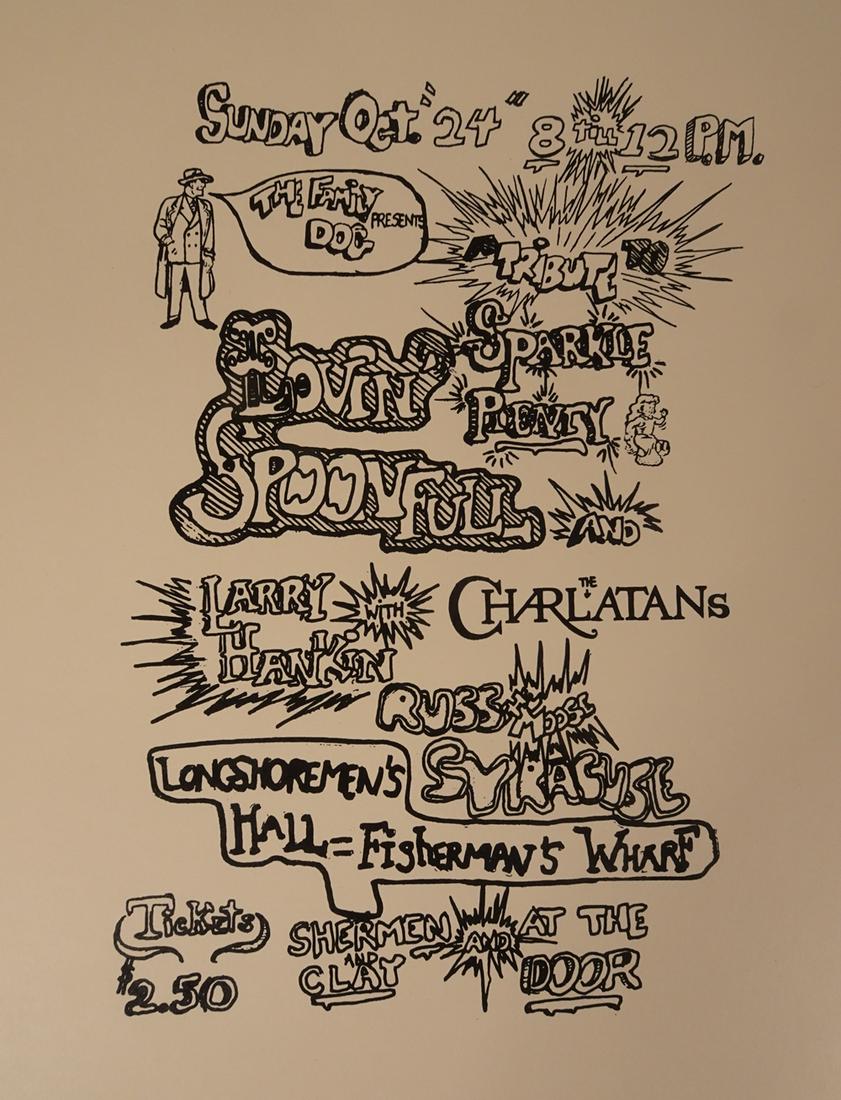 SUNDAY Oct. "24" 8 till 12 P.M.
THE FAMILY DOG PRESENTS
A TRIBUTE TO
SPARKLE PLENTY
THE LOVIN' SPOONFULL
AND
LARRY HANKIN
WITH
THE CHARLATANS
RUSS THE MOOSE SYRACUSE
LONGSHOREMEN'S
HALL = FISHERMAN'S WHARF
Tickets
$2.50
SHERMEN AND CLAY
AND
AT THE DOOR